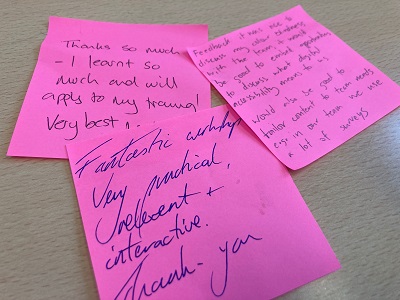 Thanks so much
- I learnt so
much and will
apply to my training!
Very best,
Feedback it was nice to
discuss my colour blindness
with the team, it would
be good to embed opportunities
to discuss what digital
accessibility means to us
would also be good to
tailor content to team needs
e.g. in our team we use
a lot of surveys
Fantastic workshop
Very practical,
relevant +
interactive.
Thank-you